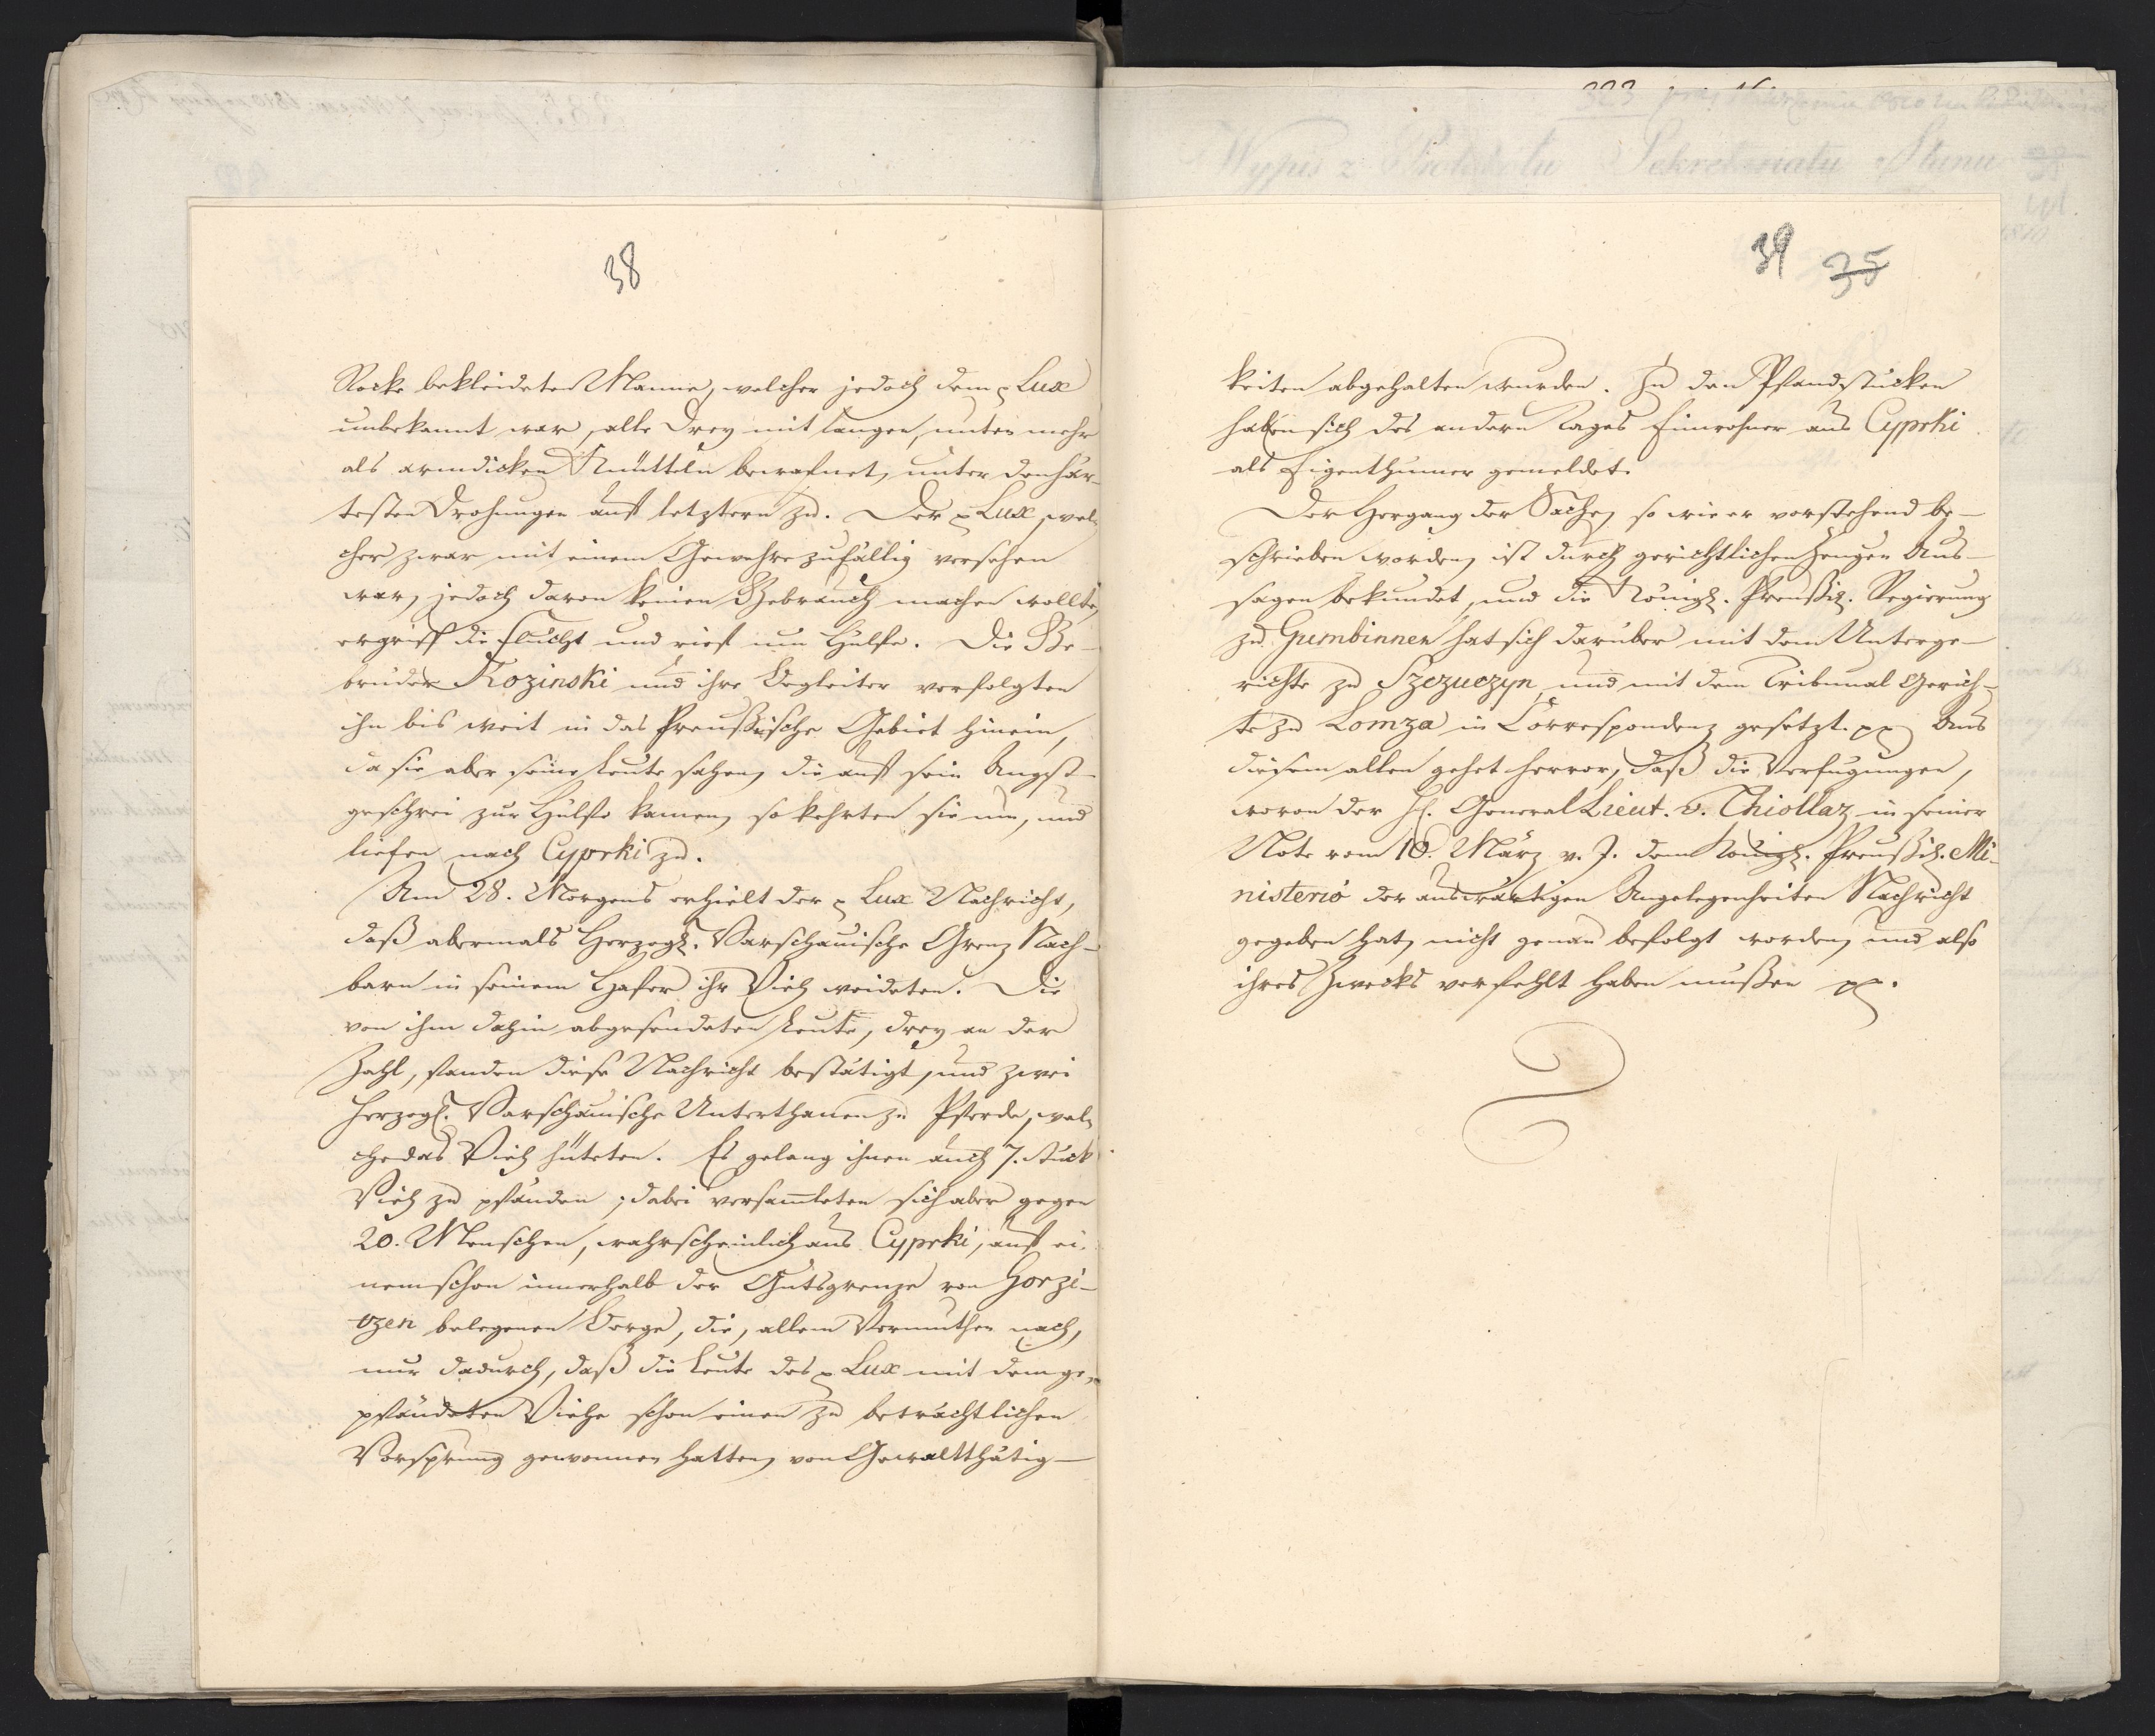 38
Rocke bekleideten Manne, welcher jedoch dem p Lux
unbekannt war, alle drey mit langen, unten mehr
als armdicken Knütteln bewafnet, unter den här-
testen Drohungen auf letztern zu. Der p Lux, wel-
cher zwar mit einem Gewehre zufällig versehen
war, jedoch davon keinen Gebrauch machen wollte,
ergriff die Flucht und rief um Hülfe. Die Ge-
brüder Kozinski und ihre Begleiter verfolgten
ihn bis weit in das Preußische Gebiet hinein,
da sie aber seine Leute sahen, die auf sein Angst-
geschrei zur Hülfe kamen, so kehrten sie um, und
liefen nach Cyprki zu.
Am 28. Morgens erhielt der p Lux Nachricht,
daß abermals Herzogl. Warschauische Grenz Nach-
barn in seinem Hafer ihr Vieh weideten. Die
von ihm dahin abgesendeten Leute, drey an der
Zahl, fanden diese Nachricht bestätigt, und zwei
Herzogl. Warschauische Unterthanen zu Pferde, wel-
che das Vieh hüteten. Es gelang ihnen auch 7. Stück
Vieh zu pfänden, dabei versamleten sich aber gegen
20. Menschen, wahrscheinlich aus Cyprki, auf ei-
nem schon innerhalb der Gutsgrenze von Gorzi-
tzen belegenen Berge, die, allem Vermuthen nach,
nur dadurch, daß die Leute des p Lux mit dem ge-
pfändeten Viehe schon einen zu beträchtlichen
Vorsprung gewonnen hatten, von Gewaltthätig-
39 35
keiten abgehalten wurden. Zu den Pfandstücken
haben sich des andern Tages Einwohner aus Cyprki
als Eigenthümer gemeldet.
Der Hergang der Sache, so wie er vorstehend be-
schrieben worden, ist durch gerichtliche Zeugen Aus-
sagen bekundet, und die Königl. Preußis. Regierung
zu Gumbinnen hat sich darüber mit dem Unterge-
richte zu Szczuczyn und mit dem Tribunal Gerich-
te zu Lomza in Correspondenz gesetzt. pp Aus
diesem allen gehet hervor, daß die Verfügungen,
wovon der H. General Lieut. v. Thiollaz in seiner
Note vom 10. März v. J. dem Königl. Preußis. Mi-
nisterio der auswärtigen Angelegenheiten Nachricht
gegeben hat, nicht genau befolgt worden, und also
ihres Zwecks verfehlt haben müßen pp.